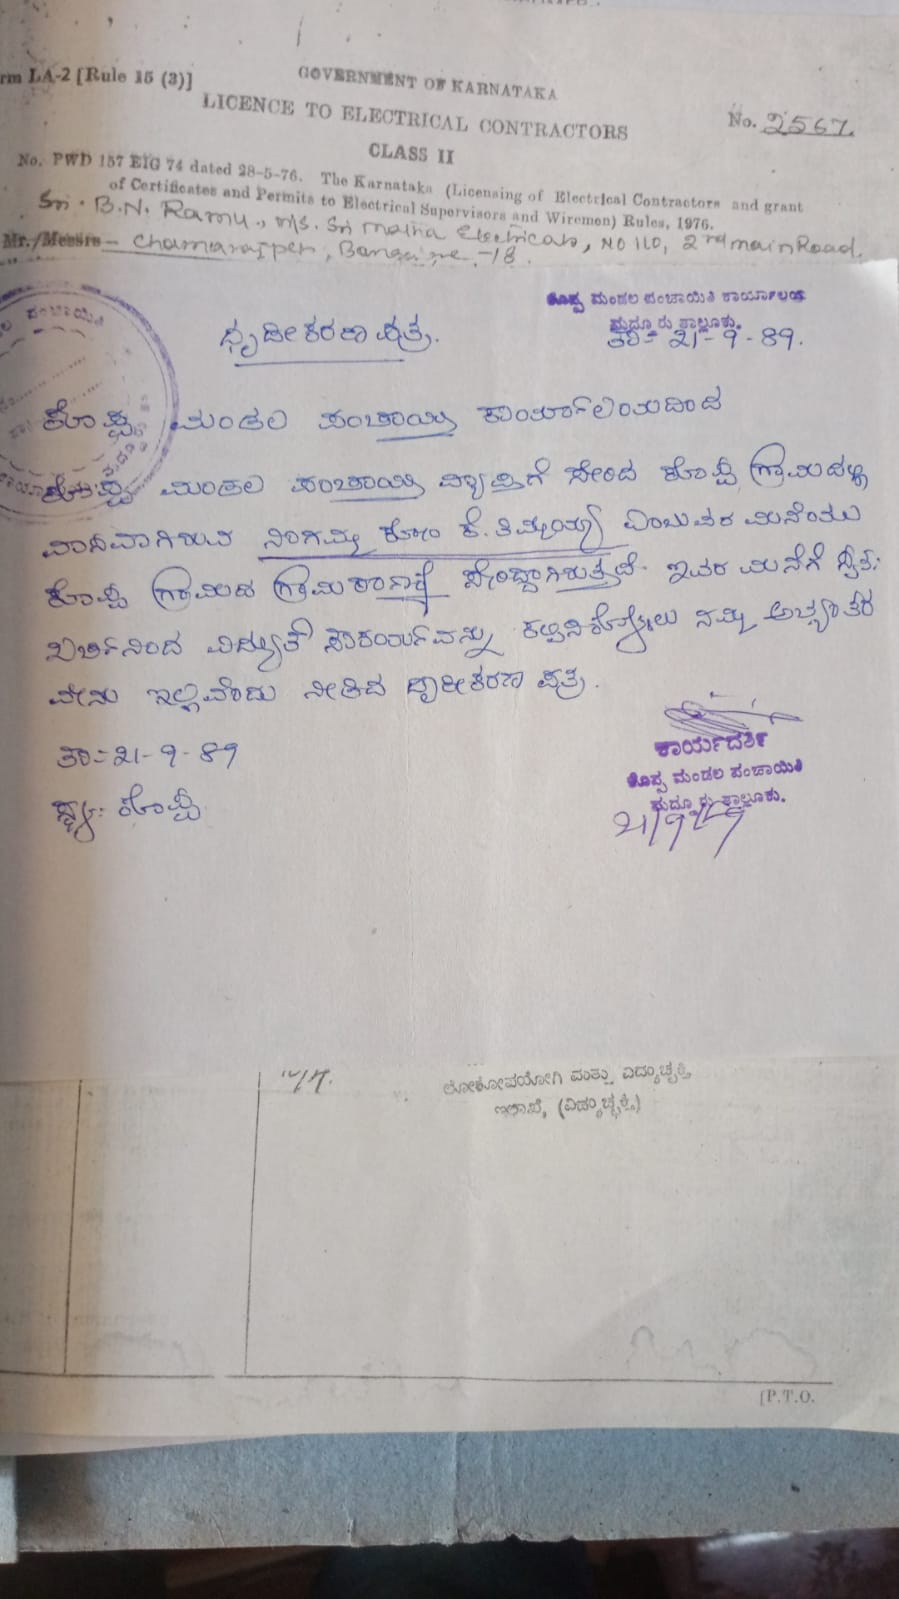 rm LA-2 [Rule 15 (3)]
GOVERNMENT OF KARNATAKA
LICENCE TO ELECTRICAL CONTRACTORS
No. 2567.
CLASS II
No. PWD 157 EIG 74 dated 28-5-76. The Karnataka (Licensing of Electrical Contractors and grant
of Certificates and Permits to Electrical Supervisors and Wiremen) Rules, 1976.
Sri. B.N. Ramu., M/s. Sri Electricals, NO 110, 2nd main Road.
Mr./Messrs - Chamarajpet, Bangalore -18.
ಕೊಪ್ಪ ಮಂಡಲ ಪಂಚಾಯಿತಿ ಕಾರ್ಯಾಲಯ
ಮದ್ದೂರು ತಾಲ್ಲೂಕು.
ಧೃಡೀಕರಣ ಪತ್ರ.
ತಾ:- 21-9-89.
ಪಂಚಾಯಿತಿ
ಕೊಪ್ಪ ಮಂಡಲ ಪಂಚಾಯ್ತಿ ಕಾರ್ಯಾಲಯದಿಂದ
ಕೊಪ್ಪ ಮಂಡಲ ಪಂಚಾಯ್ತಿ ವ್ಯಾಪ್ತಿಗೆ ಸೇರಿದ ಕೊಪ್ಪ ಗ್ರಾಮದಲ್ಲಿ
ವಾಸವಾಗಿರುವ ನಿಂಗಮ್ಮ ಕೋಂ ಕೆ. ತಿಮ್ಮಯ್ಯ ಎಂಬುವರ ಮನೆಯು
ಕೊಪ್ಪ ಗ್ರಾಮದ ಗ್ರಾಮಠಾಣೆಗೆ ಸೇರಿದ್ದಾಗಿರುತ್ತದೆ. ಇವರ ಮನೆಗೆ ಸ್ವಂತ
ಖರ್ಚಿನಿಂದ ವಿದ್ಯುತ್ ಸೌಕರ್ಯವನ್ನು ಕಲ್ಪಿಸಿಕೊಳ್ಳಲು ನಮ್ಮ ಅಭ್ಯಂತರ
ವೇನು ಇಲ್ಲವೆಂದು ನೀಡಿದ ದೃಢೀಕರಣ ಪತ್ರ.
ತಾ:- 21-9-89
ಸ್ಥಳ: ಕೊಪ್ಪ
ಕಾರ್ಯದರ್ಶಿ
ಕೊಪ್ಪ ಮಂಡಲ ಪಂಚಾಯಿತಿ
ಮದ್ದೂರು ತಾಲ್ಲೂಕು.
21/9/89
ಲೋಕೋಪಯೋಗಿ ಮತ್ತು ವಿದ್ಯುಚ್ಛಕ್ತಿ
ಇಲಾಖೆ, (ವಿದ್ಯುಚ್ಛಕ್ತಿ)
[P.T.O.